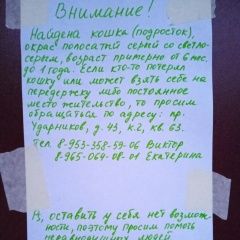 Внимание!
Найдена кошка (подросток),
окрас полосатый серый со светло-
серым, возраст примерно от 6 мес.
до 1 года. Если кто-то потерял
кошку или может взять себе на
передержку либо постоянное
место жительство, то просим
обращаться по адресу: пр.
Ударников, д. 43, к.2, кв. 63.
Тел. 8-953-358-59-06 Виктор
8-965-064-08-01 Екатерина
оставить у себя нет возмож-
ности, поэтому просим помочь
неравнодушных людей